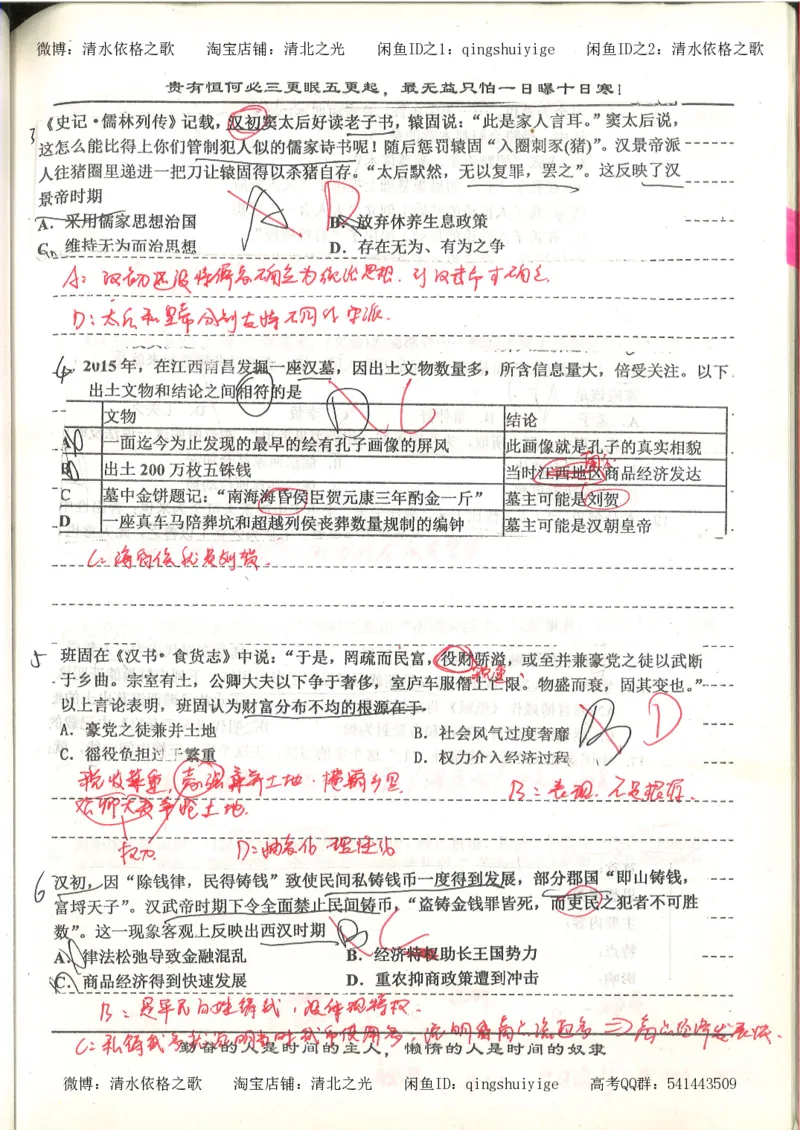 微博：清水依格之歌 淘宝店铺：清北之光 闲鱼ID之1：qingshuiyige 闲鱼ID之2：清水依格之歌
贵有恒何必三更眠五更起，最无益只怕一日曝十日寒！
3
《史记·儒林列传》记载，汉初窦太后好读老子书，辕固说：“此是家人言耳。”窦太后说，
这怎么能比得上你们管制犯人似的儒家诗书呢！随后惩罚辕固“入圈刺豕(猪)”。汉景帝派
人往猪圈里递进一把刀让辕固得以杀猪自存。“太后默然，无以复罪，罢之”。这反映了汉
景帝时期
A．采用儒家思想治国 B．放弃休养生息政策
C．维持无为而治思想 D．存在无为、有为之争
A D
A：汉初还没将儒家确立为统治思想．到汉武帝才确立
D：太后和景帝分别支持不同的学派．
4．2015年，在江西南昌发掘一座汉墓，因出土文物数量多，所含信息量大，倍受关注。以下
出土文物和结论之间相符的是
D C
文物 结论
A 一面迄今为止发现的最早的绘有孔子画像的屏风 此画像就是孔子的真实相貌
B 出土200万枚五铢钱 当时江西地区商品经济发达
C 墓中金饼题记：“南海海昏侯臣贺元康三年酎金一斤” 墓主可能是刘贺
D 一座真车马陪葬坑和超越列侯丧葬数量规制的编钟 墓主可能是汉朝皇帝
C：海昏侯就是刘贺．
5 班固在《汉书·食货志》中说：“于是，罔疏而民富，役财骄溢，或至并兼豪党之徒以武断
于乡曲。宗室有土，公卿大夫以下争于奢侈，室庐车服僭上亡限。物盛而衰，固其变也。”
以上言论表明，班固认为财富分布不均的根源在于
B D
A．豪党之徒兼并土地 B．社会风气过度奢靡
C．徭役负担过于繁重 D．权力介入经济过程
税收繁重，豪强兼并土地．横霸乡里 B：表现．不是根源．
公卿大夫争抢土地．
权力 D：
6 汉初，因“除钱律，民得铸钱”致使民间私铸钱币一度得到发展，部分郡国“即山铸钱，
富埒天子”。汉武帝时期下令全面禁止民间铸币，“盗铸金钱罪皆死，而吏民之犯者不可胜
数”。这一现象客观上反映出西汉时期
B C
A．律法松弛导致金融混乱 B．经济特权助长王国势力
C．商品经济得到快速发展 D．重农抑商政策遭到冲击
B：是平民百姓铸钱，没体现特权．
C：私铸钱多
勤奋的人是时间的主人，懒惰的人是时间的奴隶
微博：清水依格之歌 淘宝店铺：清北之光 闲鱼ID：qingshuiyige 高考QQ群：541443509